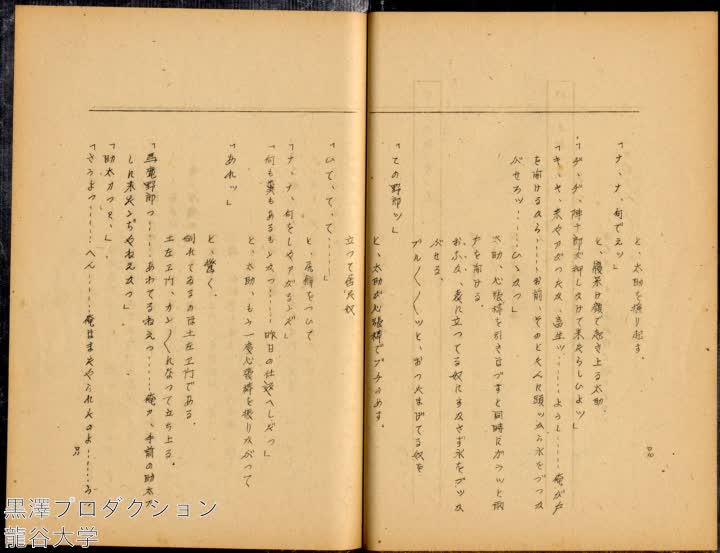 と、太助を揺り起す。
「ナ、ナ、何でえッ」
と、寝呆け顔で起き上る太助。
「ヂ、ヂ、陣十郎が押しかけて来たらしひよッ」
「キ、キ、来やァがつたな、畜生ッ……ようし……俺が戸
を開けるから……お前、そのとたんに頭ッから水をぶつか
ぶせろッ……ひゝなつ」
太助、心張棒を引きはづすと同時にガラッと雨
戸を開ける。
おふな、表に立つてる奴にすかさず水をブッか
ぶせる。
ブル〳〵ッと、おつたまげてる奴を
「この野郎ッ」
と、太助が心張棒でブチのめす。
立つて居た奴
「ひて、て、て……」
と、尻餅をついて
「ナ、ナ、何をしやァがるンだ」
「何も糞もあるもンかつ……昨日の仕返へしだつ」
と、太助、もう一度心張棒を振りかぶつて
「あれッ」
と、驚く。
倒れてゐるのは土左ヱ門である。
土左ヱ門、カン〳〵になつて立ち上る。
「馬鹿野郎つ……あわてるねえつ……俺ァ、手前の助太刀
しに来たンぢやねえかつ」
「助太刀つて、」
「さうよつ……へん……俺はまたやられたのよ……う
黒澤プロダクション
龍谷大学